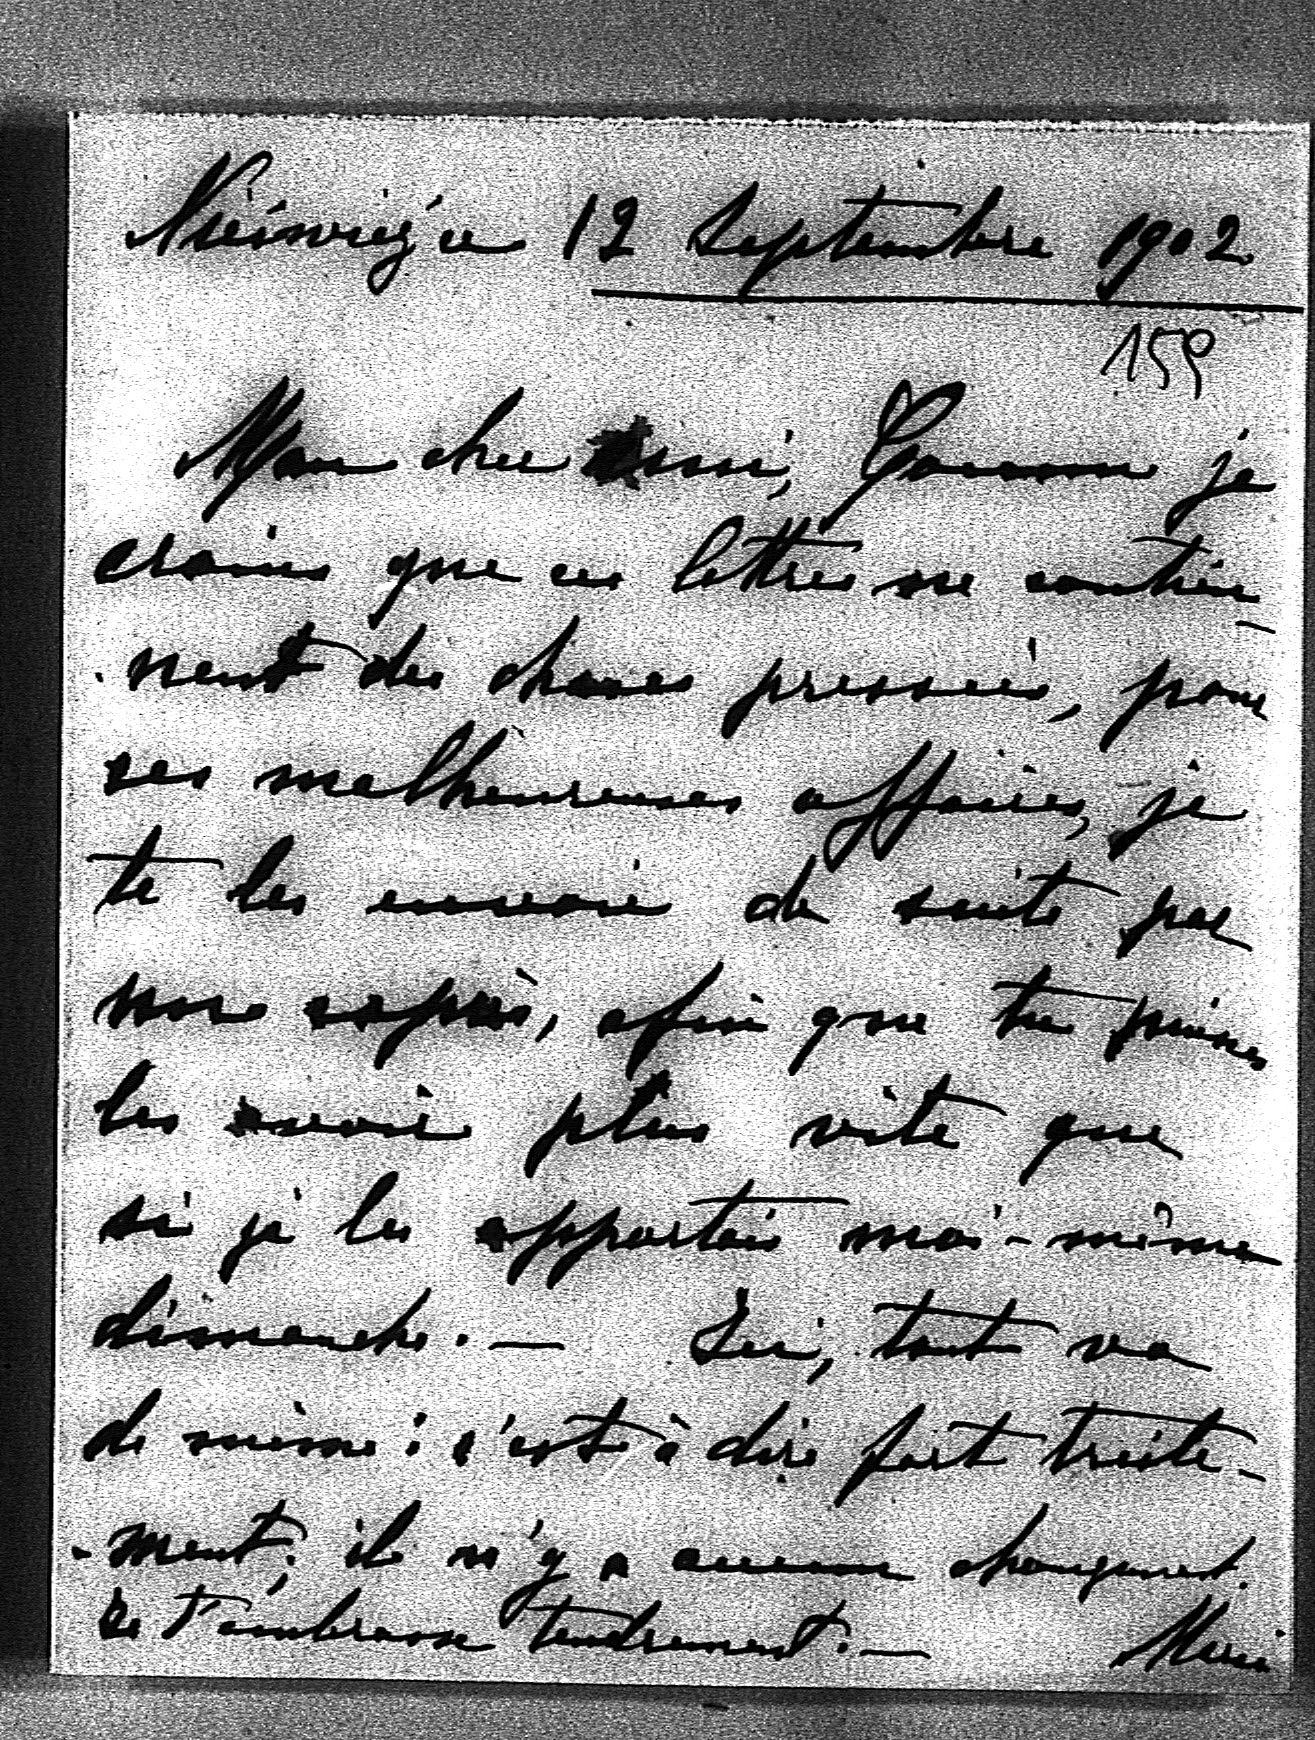 Niéswiéz ce 12 Septembre 1902
159
Mon cher ami, Comme je
crains que ces lettres ne contien-
-nent des choses pressées, pour
ses malheureuses affaires, je
te les envoie de suite par
mon exprès, afin que tu puisses
les avoir plus vite que
si je les apportais moi-même
dimanche. — Ici, tout va
de même : c'est à dire fort triste-
-ment; il n'y a aucun changement.
Je t'embrasse tendrement. —